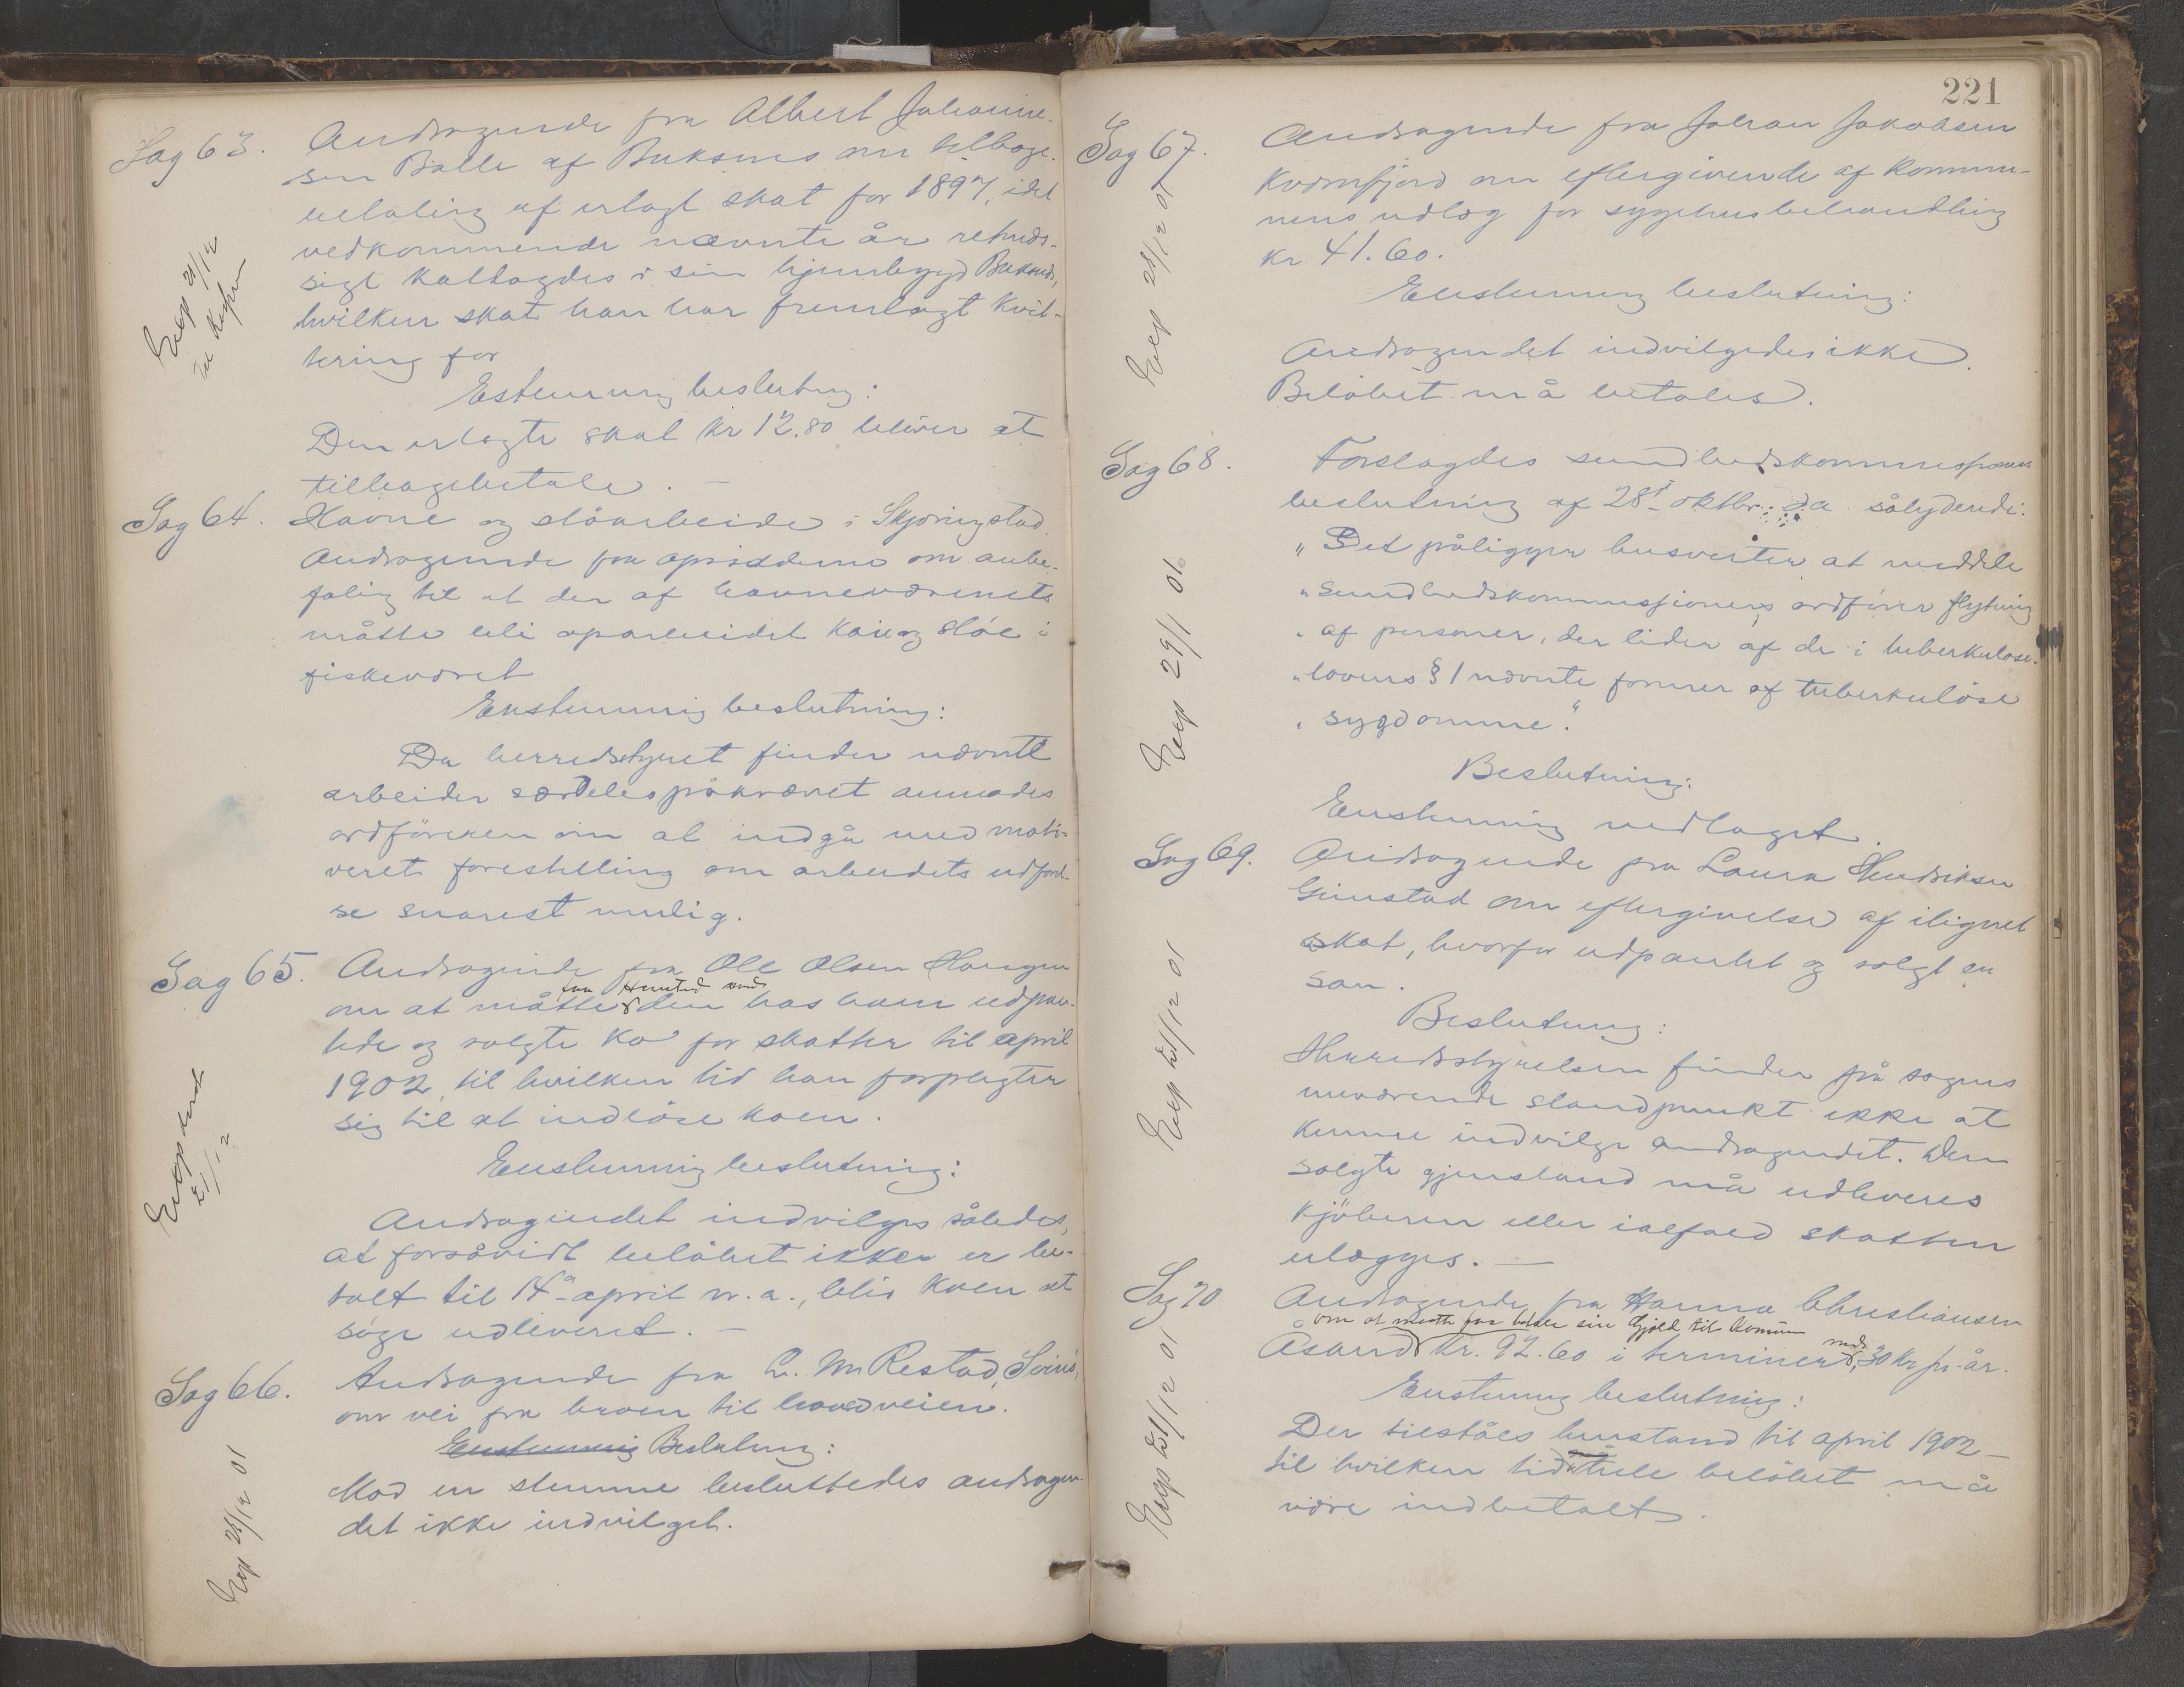 Sag 63. Andragende fra Albert Johanne-
sen Balle af Buksnes om tilbage-
betaling af erlagt skat for 1897, idet
vedkommende nævnte år retmæs-
sigt skatlagdes i sin hjembygd Buksnes,
hvilken skat han har fremlagt kvit-
tering for
Exp 21/12
Enstemmig beslutning:
Den erlagte skat kr 12.80 bliver at
tilbagebetale. —
Sag 64. Havne og støarbeide i Skjæringstad
Andragende fra opsidderne om anbe-
faling til at der af havnevæsenets
måtte bli oparbeidet kai og støe i
fiskeværet
Enstemmig beslutning:
Da herredstyret finder nævnte
arbeider særdeles påkrævet anmodes
ordføreren om at indgå med moti-
veret forestilling om arbeidets udførel-
se snarest mulig.
Sag 65. Andragende fra Ole Olsen Haugen
faa Henstand med
om at måtte den hos ham udpan-
tede og solgte ko for skatter til april
1902, til hvilken tid han forpligter
sig til at indløse koen.
Enstemmig beslutning:
Exp
21/12
Andragendet indvilges således,
at forsåvidt beløbet ikke er be-
talt til 14de april n. a., blir koen at
søge udleveret. —
Sag 66. Andragende fra L. M. Restad,
om vei fra broen til hovedveien.
Enstemmig Beslutning:
Mod en stemme besluttedes andragen-
det ikke indvilget.
Exp 21/12 01
221
Sag 67. Andragende fra Johan Jakobsen
Kvæfjord om eftergivende af kommu-
nens udlæg for sygehusbehandling
kr 41.60.
Exp 21/12 01
Enstemmig beslutning:
Andragendet indvilgedes ikke.
Beløbet må betales.
Sag 68. Forelagdes sundhedskommissionens
beslutning af 28de oktbr. d.a. sålydende:
"Det påligger husverter at meddele
"sundhedskommissionens ordfører flytning
"af personer, der lider af de i tuberkulose-
"lovens § 1 nævnte former af tuberkuløse
"sygdomme."
Exp 29/1 01
Beslutning:
Enstemmig vedtaget.
Sag 69. Andragende fra Laura Hendriksen
Gimstad om eftergivelse af ilignet
skat, hvorfor udpantet og solgt en
sau.
Exp 21/12 01
Beslutning:
Herredsstyrelsen finder på sagens
nuværende standpunkt ikke at
kunne indvilge andragendet. Den
solgte gjenstand må udleveres
kjøberen eller ialfald skatten
erlægges. —
Sag 70 Andragende fra Hanna Christiansen
om at maatte faa betale sin Gjæld til Komunen
Åsand kr. 92.60 i terminer med 30 kr pr. år.
Enstemmig beslutning:
Der tilståes henstand til april 1902
til hvilken tid hele beløbet må
være indbetalt.
Exp 21/12 01